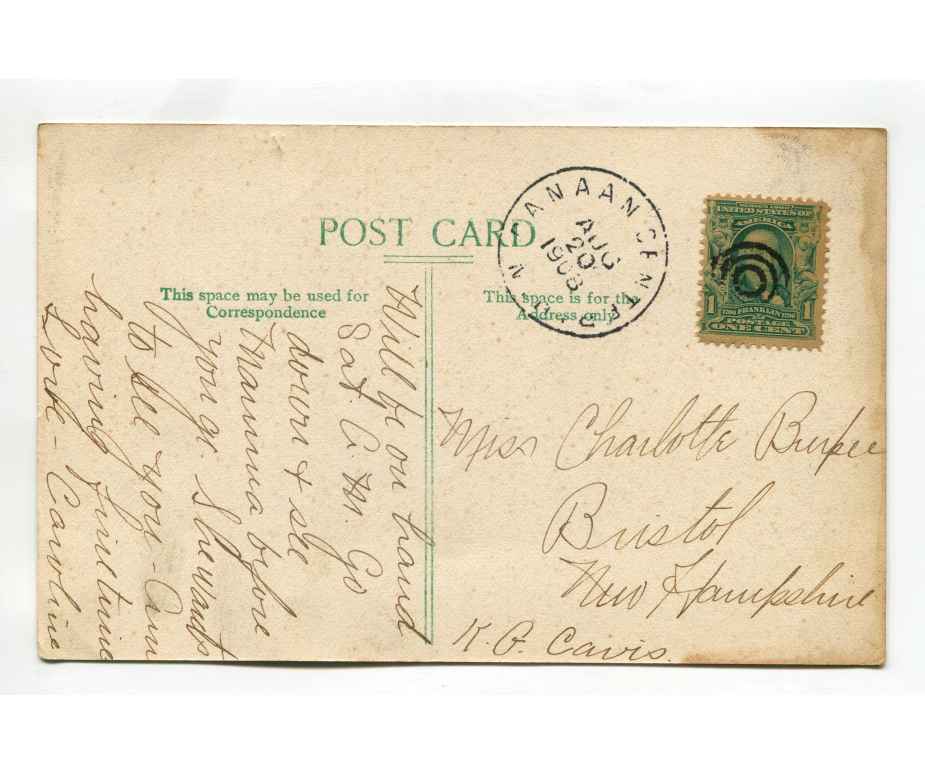 POST CARD
This space may be used for
Correspondence
This space is for the
Address only
CANAAN CENTER
N.H.
AUG
20
1908
UNITED STATES OF
AMERICA
1 FRANKLIN 1
POSTAGE
ONE CENT
Will be on hand
Sat A. M. Go
down & see
Mamma before
you go. She wants
to see you - Am
having fine time
Love - Caroline
Miss Charlotte Burpee
Bristol
New Hampshire
K. G. Cavis.